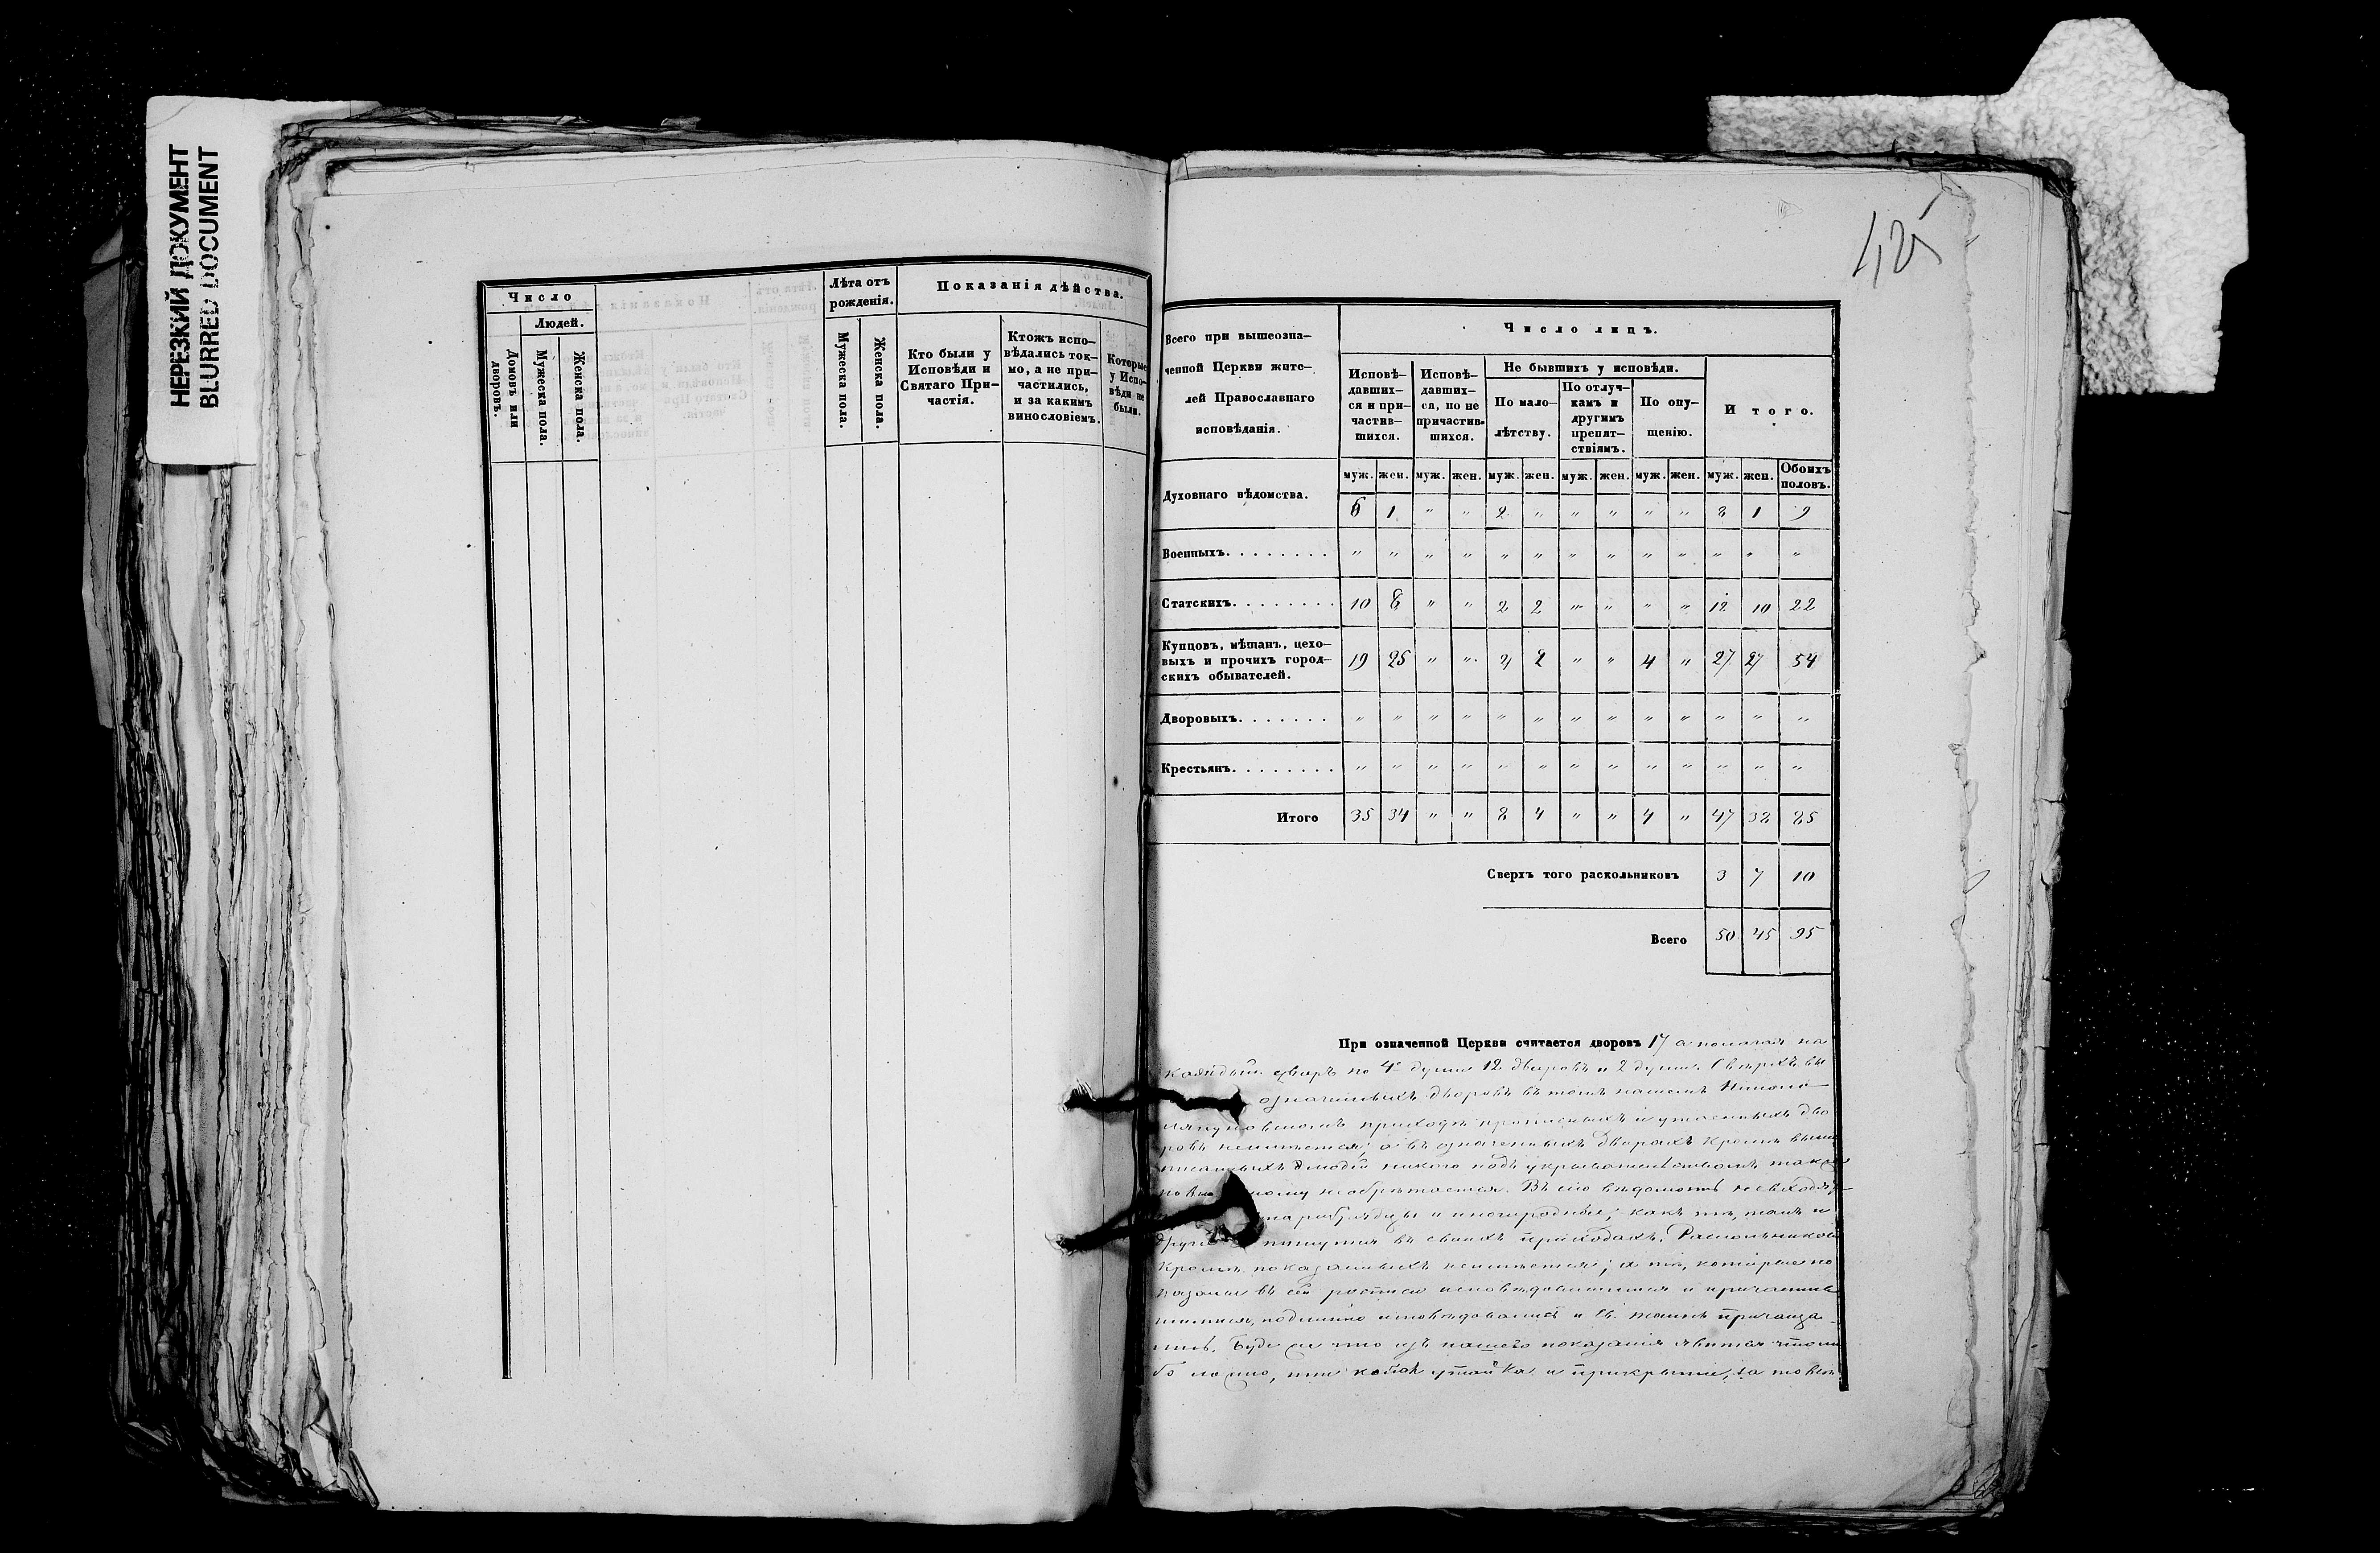 НЕРЕЗКИЙ ДОКУМЕНТ
BLURRED DOCUMENT
Число
Людей.
Домовъ или дворовъ.
Мужеска пола.
Женска пола.
Лѣта отъ рожденія.
Мужеска пола.
Женска пола.
Показанія дѣйства.
Кто были у
Исповѣди и
Святаго При-
частія.
Ктожъ испо-
вѣдались ток-
мо, а не при-
частились,
и за какимъ
винословіемъ.
Которые
у Испо-
вѣди не
были.
425
Всего при вышеозна-
ченной Церкви жите-
лей Православнаго
исповѣданія.
Число лицъ.
Исповѣ-
давших-
ся и при-
частив-
шихся.
Исповѣ-
давших-
ся, но не
причастив-
шихся.
Не бывшихъ у исповѣди.
По мало-
лѣтству.
По отлуч-
камъ и
другимъ
препят-
ствіямъ.
По опу-
щенію.
Итого.
муж. жен. муж. жен. муж. жен. муж. жен. муж. жен. муж. жен. Обоихъ половъ.
Духовнаго вѣдомства. 6 1 " " 2 " " " " " 8 1 9
Военныхъ. " " " " " " " " " " " " "
Статскихъ. 10 8 " " 2 2 " " " " 12 10 22
Купцовъ, мѣщанъ, цехо-
выхъ и прочихъ город-
скихъ обывателей. 19 25 " " 4 2 " " 4 " 27 27 54
Дворовыхъ. " " " " " " " " " " " " "
Крестьянъ. " " " " " " " " " " " " "
Итого 35 34 " " 8 4 " " 4 " 47 38 85
Сверхъ того раскольниковъ 3 7 10
Всего 50 45 95
При означенной Церкви считается дворовъ 17 а полагая на
каждый дворъ по 4 души 12 дворовъ и 2 души. Сверхъ вы
означенныхъ дворовъ въ томъ нашемъ
приходѣ прописныхъ и утаенныхъ дво
ровъ неимѣется; а въ означенныхъ дворахъ кромѣ выше
писанныхъ людей никого подъ укрывательствомъ
необрѣтается. Въ сію вѣдомость не входятъ
и иногородные; какъ тѣ, такъ и
другіе пишутся въ своихъ приходахъ. Раскольниковъ
кромѣ показанныхъ неимѣется; а тѣ, которые по
казаны въ сей росписи исповѣдавшимися и причастив
шимися, подлинно исповѣдовались и Св. Таинъ причаща
лись. Буде же что изъ нашего показанія явится что ли
бо ложно, или какая утайка и прикрытіе, за то